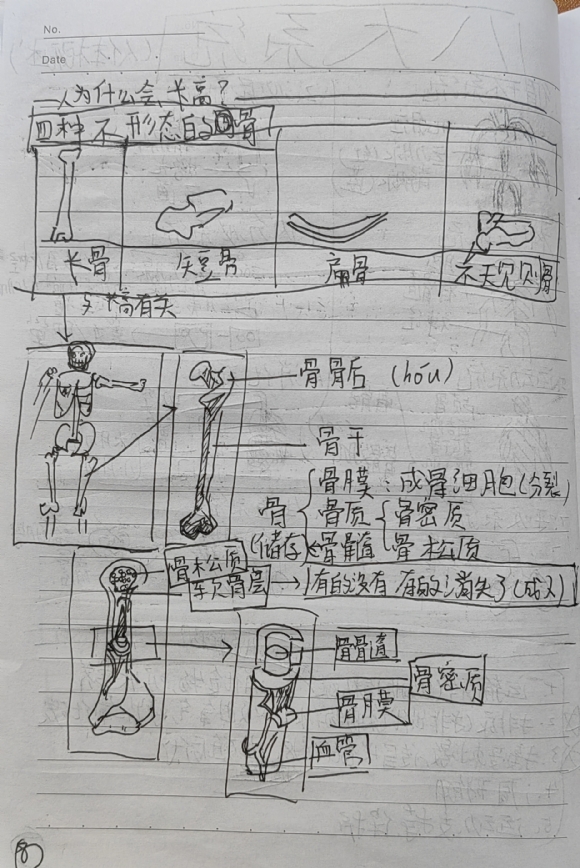 No.
Date
人为什么会长高?
四种不形态的骨
长骨 短骨 扁骨 不规则骨
与长高有关
骨骺 (hóu)
骨干
骨膜:成骨细胞(分裂)
骨 骨质 骨密质
(储存) 骨髓 骨松质
骨松质
软骨层 → 有的没有 有的消失了(成人)
骨髓
骨密质
骨膜
血管
8